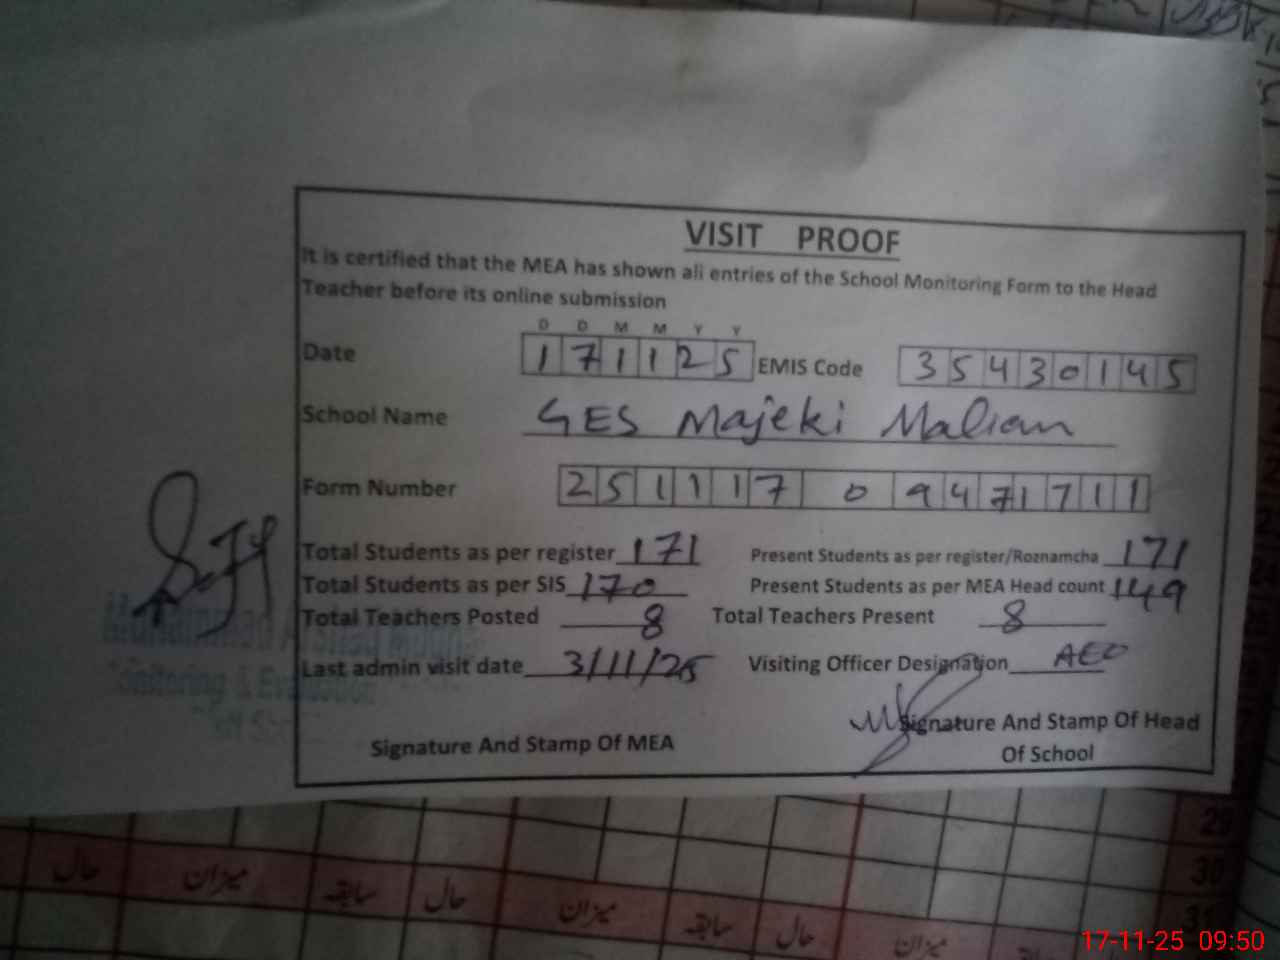 VISIT PROOF
It is certified that the MEA has shown all entries of the School Monitoring Form to the Head
Teacher before its online submission
D D M M Y Y
Date 1 7 1 1 2 5 EMIS Code 3 5 4 3 0 1 4 5
School Name GES Majeki Malian
Form Number 2 5 1 1 1 7 0 9 4 7 1 7 1 1
Total Students as per register 171 Present Students as per register/Roznamcha 171
Total Students as per SIS 170 Present Students as per MEA Head count 149
Total Teachers Posted 8 Total Teachers Present 8
Last admin visit date 3/11/25 Visiting Officer Designation AEO
Signature And Stamp Of MEA Signature And Stamp Of Head
Of School
Monitoring & Evaluation
29
30
31
حال میزان سابقہ حال میزان سابقہ حال میزان
17-11-25 09:50